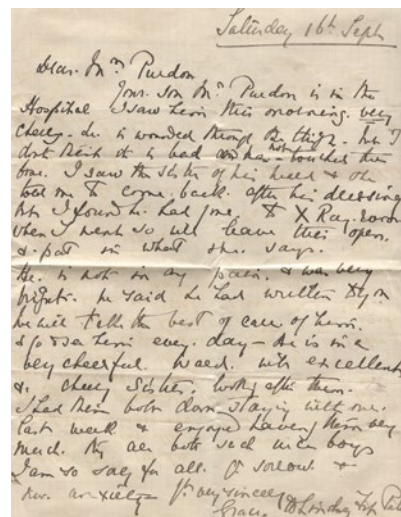 Saturday 16th Sept
Dear Mrs Purdon
Your son Mr Purdon is in the
Hospital I saw him this morning. very
cheery - he is wounded through the thigh. but I
dont think it is bad & has not touched the
bone. I saw the sister of his ward & she
told me to come back after his dressing
but I found he had gone to X Ray. room
when I went so will leave this open.
& put in what she says.
He is not in any pain & was very
bright. he said he had written to you
he will take the best of care of him.
& go & see him every day - He is in a
very cheerful ward with excellent
& cheery Sister looking after them.
I had them both down staying with me
last week & enjoyed having them very
much. They are both such nice boys
I am so sorry for all yr sorrow &
new anxiety Yr very sincerely